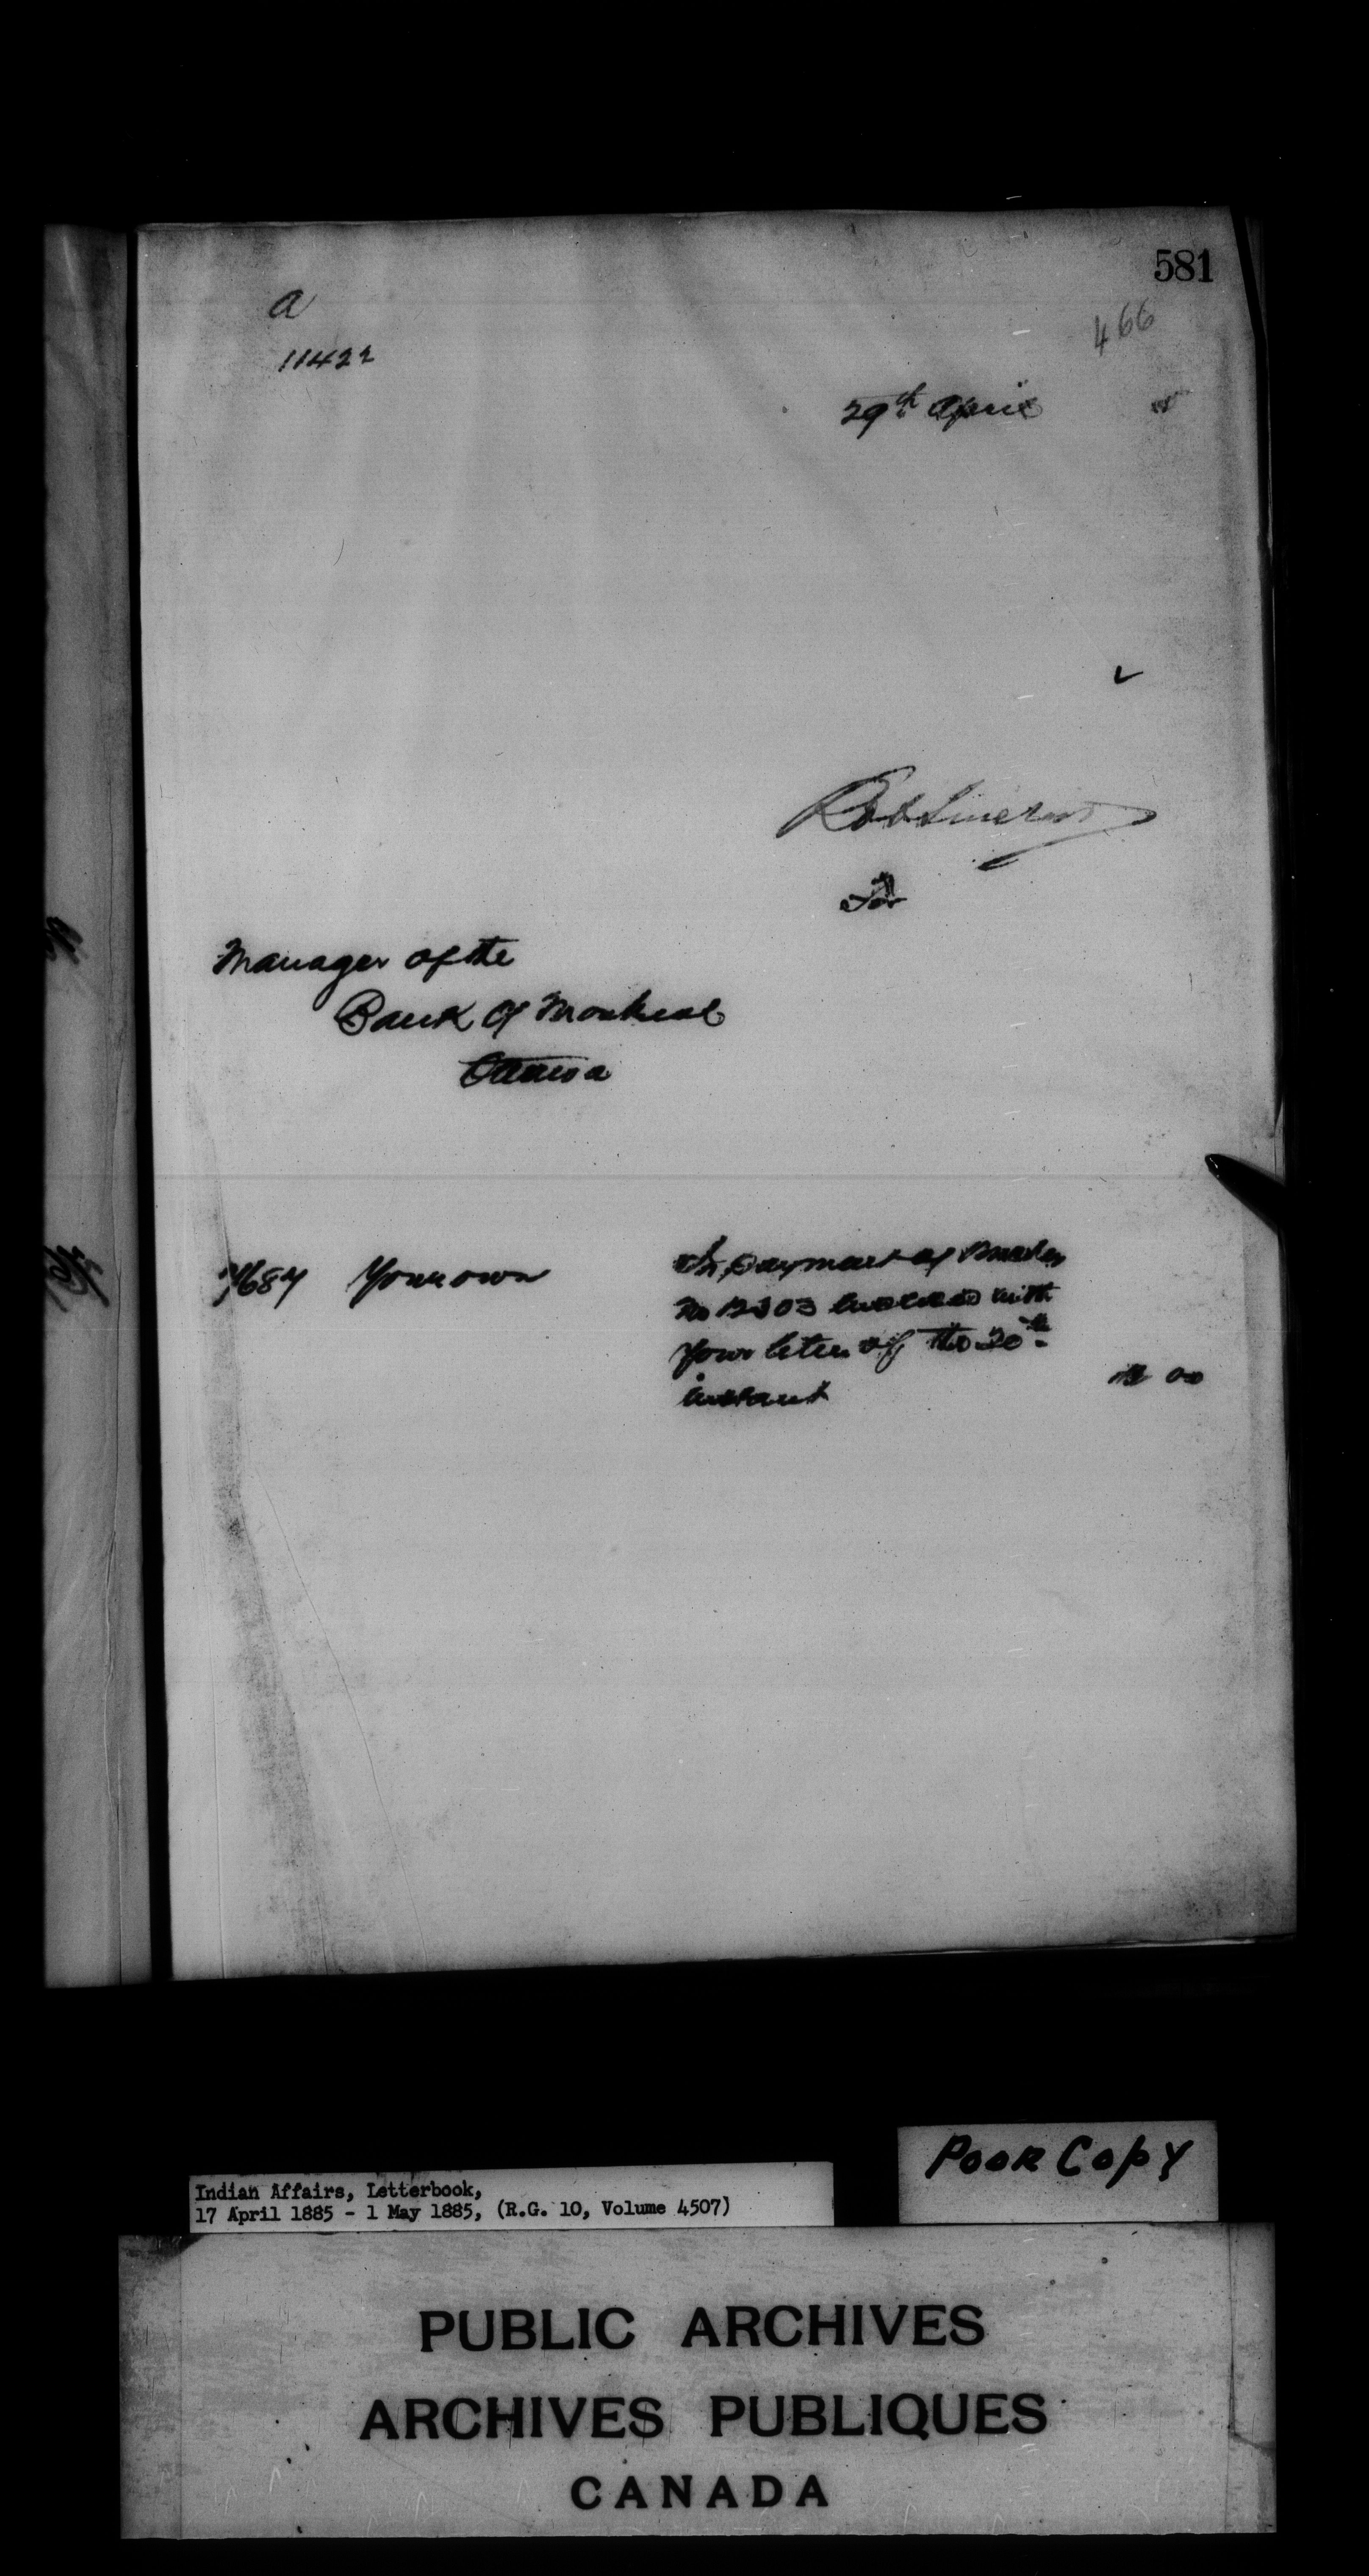 581
a
466
11422
29th April
Rob Sinclair
For
Manager of the
Bank of Montreal
Ottawa
7684 Your own
In payment of
No 12303 enclosed with
your letter of the 20th
instant
00
Poor Copy
Indian Affairs, Letterbook,
17 April 1885 - 1 May 1885, (R.G. 10, Volume 4507)
PUBLIC ARCHIVES
ARCHIVES PUBLIQUES
CANADA